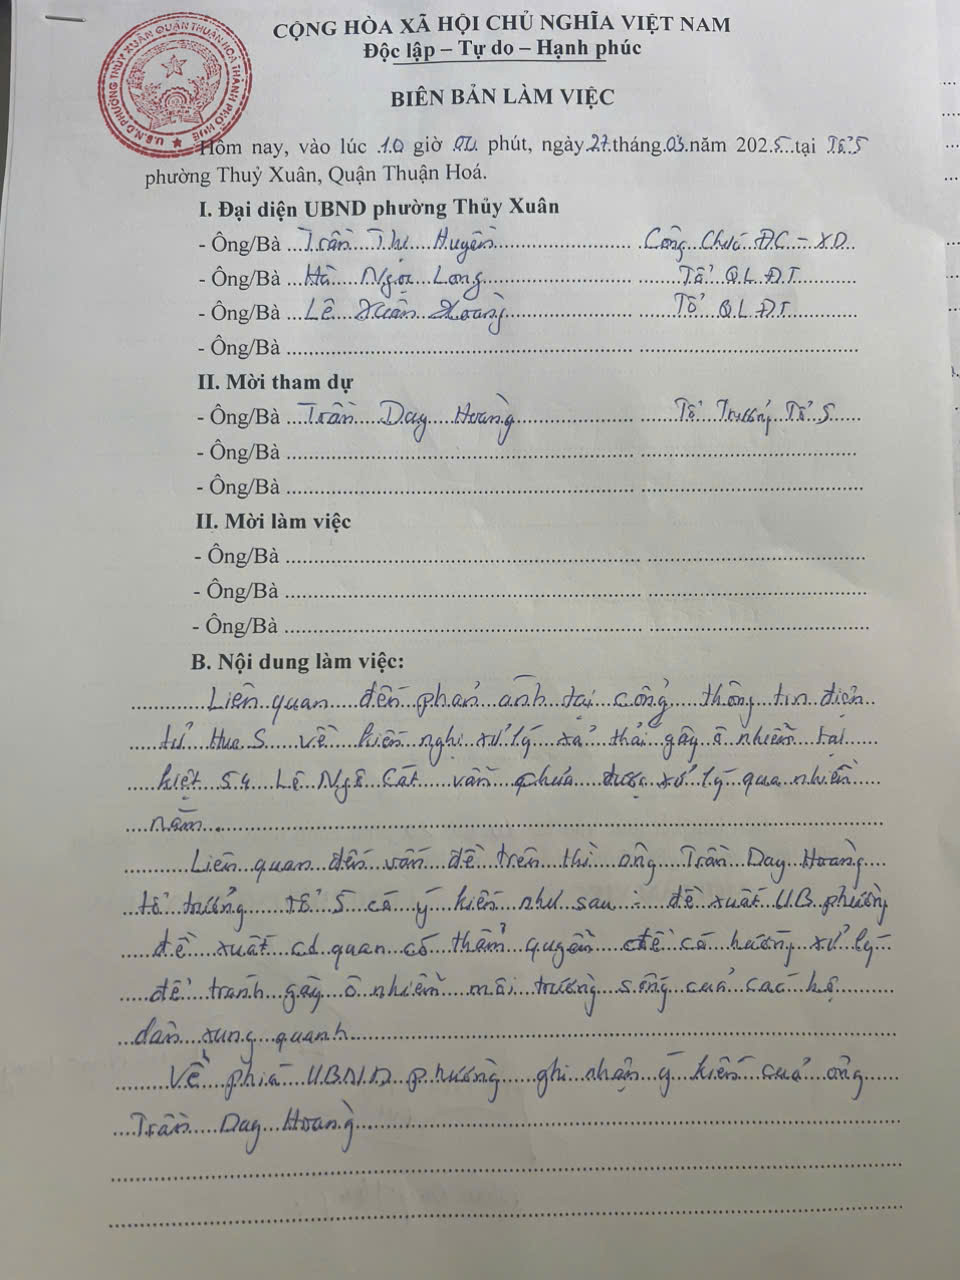 CỘNG HÒA XÃ HỘI CHỦ NGHĨA VIỆT NAM
Độc lập – Tự do – Hạnh phúc
U.B.N.D PHƯỜNG THỦY XUÂN QUẬN THUẬN HÓA THÀNH PHỐ HUẾ
BIÊN BẢN LÀM VIỆC
Hôm nay, vào lúc 10 giờ 00 phút, ngày 27 tháng 03 năm 2025 tại Tổ 5
phường Thuỷ Xuân, Quận Thuận Hoá.
I. Đại diện UBND phường Thủy Xuân
- Ông/Bà Trần Thị Huyền Công Chức ĐC - XD
- Ông/Bà Hà Ngọc Long Tổ QLĐT
- Ông/Bà Lê Xuân Hoàng Tổ QLĐT
- Ông/Bà
II. Mời tham dự
- Ông/Bà Trần Day Hoàng Tổ Trưởng Tổ 5
- Ông/Bà
- Ông/Bà
II. Mời làm việc
- Ông/Bà
- Ông/Bà
- Ông/Bà
B. Nội dung làm việc:
Liên quan đến phản ánh tại cổng thông tin điện
tử Hue S về kiến nghị xử lý xả thải gây ô nhiễm tại
kiệt 54 Lê Ngô Cát vẫn chưa được xử lý qua nhiều
năm
Liên quan đến vấn đề trên thì ông Trần Day Hoàng
tổ trưởng tổ 5 có ý kiến như sau: đề xuất UB phường
đề xuất cơ quan có thẩm quyền để có hướng xử lý
để tránh gây ô nhiễm môi trường sống của các hộ
dân xung quanh
Về phía UBND phường ghi nhận ý kiến của ông
Trần Day Hoàng